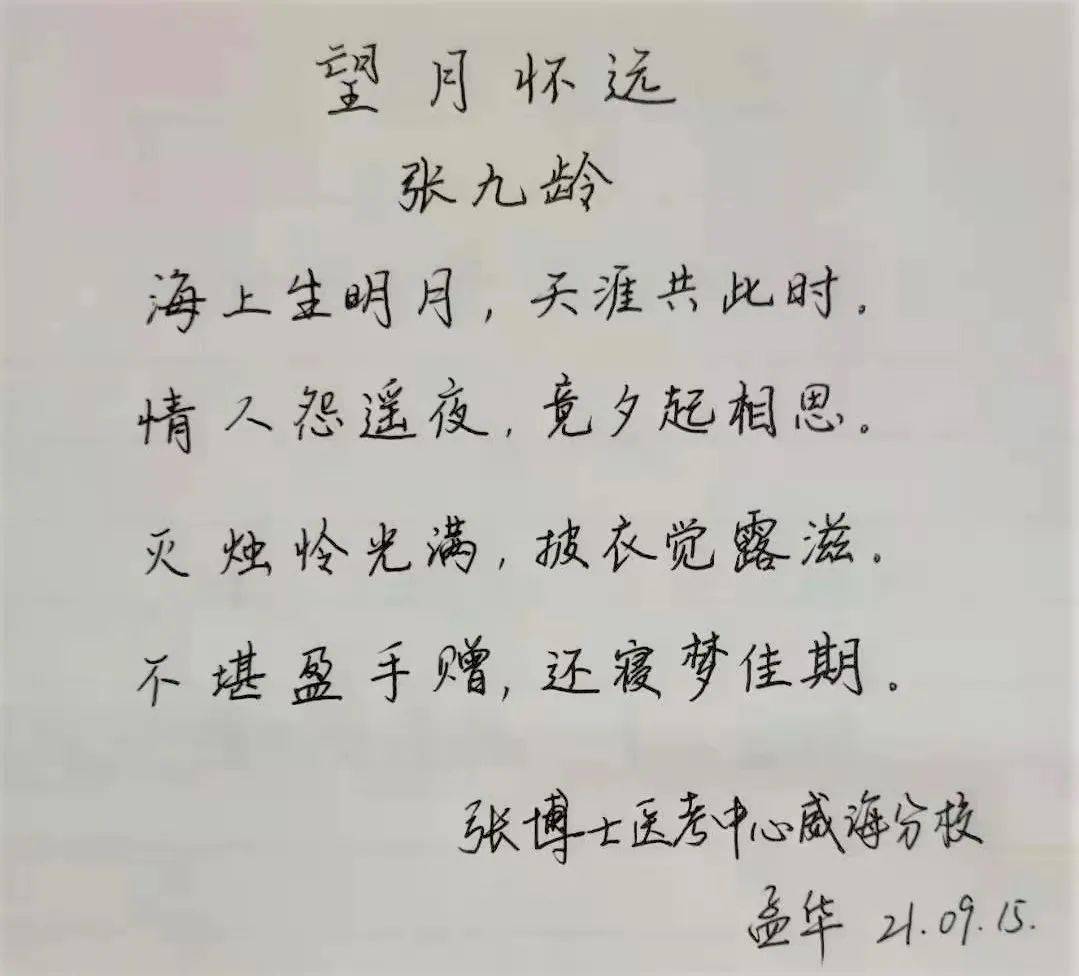 望月怀远
张九龄
海上生明月，天涯共此时。
情人怨遥夜，竟夕起相思。
灭烛怜光满，披衣觉露滋。
不堪盈手赠，还寝梦佳期。
张博士医考中心威海分校
孟华 21.09.15.